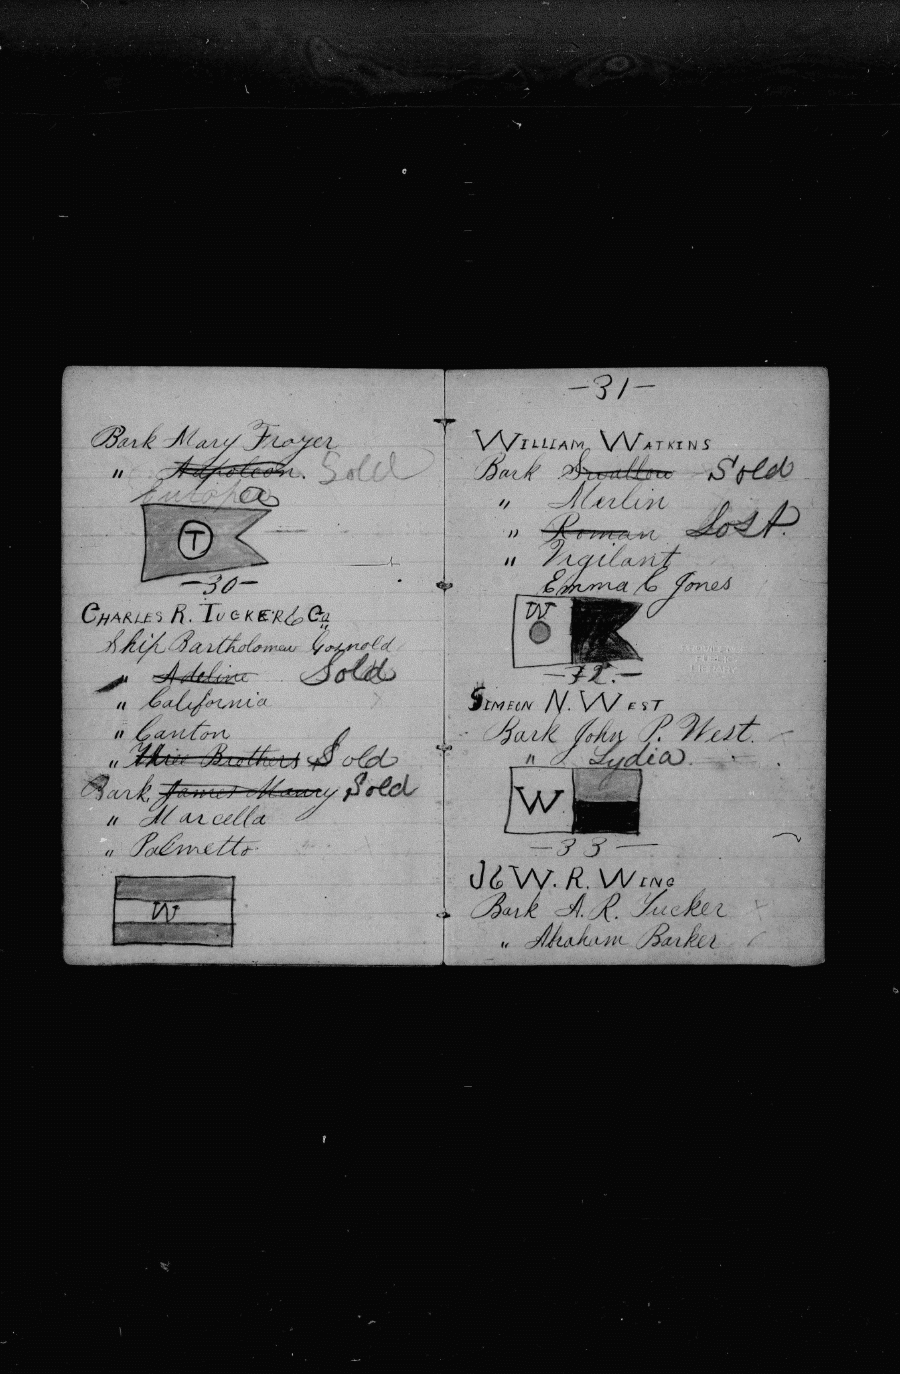 Bark Mary Frazer
" Napoleon. Sold
Europa
T
—30—
CHARLES R. TUCKER & Co
Ship Bartholomew Gosnold
" Adeline Sold
" California
" Canton
" Three Brothers Sold
Bark James Maury Sold
" Marcella
" Palmetto
W
—31—
WILLIAM WATKINS
Bark Swallow Sold
" Merlin
" Roman Lost.
" Vigilant
Emma C Jones
W
—32.—
SIMEON N. WEST
Bark John P. West.
" Lydia
W
—33—
J & W. R. WING
Bark A. R. Tucker
" Abraham Barker